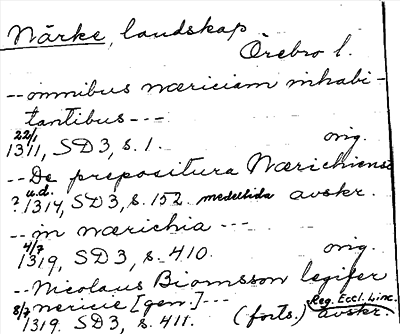 Närke, landskap
Örebro l.
-- omnibus næriciam inhabi-
tantibus ---
22/1 1311, SD3, s. 1. orig.
-- De prepositura Nærichiensi
? u.d. 1314, SD3, s. 152. medeltida avskr.
-- in nærichia ---
4/7 1319, SD3, s. 410. orig.
-- Nicolaus Biornsson legifer
nericie [gen.] --- Reg. Eccl. Linc.
8/7 1319. SD3, s. 411. (forts.) avskr.